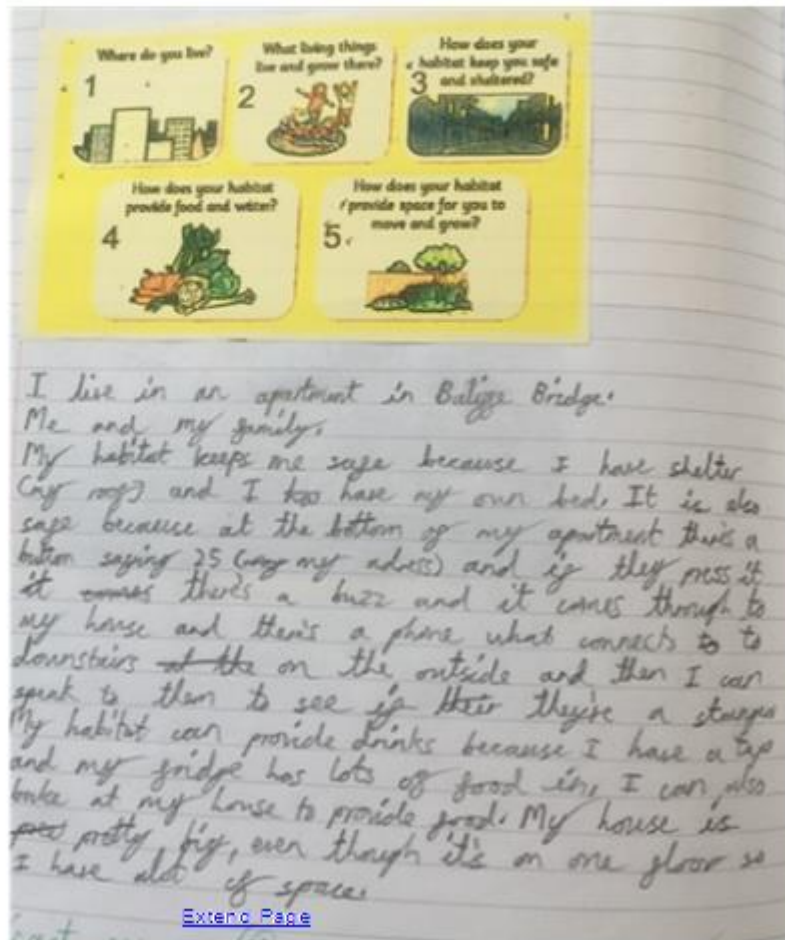 Where do you live?
1
What living things
live and grow there?
2
How does your
habitat keep you safe
3 and sheltered?
How does your habitat
provide food and water?
4
How does your habitat
provide space for you to
move and grow?
5
I live in an apartment in Bridge.
Me and my family.
My habitat keeps me safe because I have shelter
(my roof) and I have my own bed. It is also
safe because at the bottom of my apartment there's a
button saying 25 (my adress) and if they press it
it there's a buzz and it comes through to
my house and there's a phone what connects to to
downstairs at the on the outside and then I can
speak to them to see if their they're a
My habitat can provide drinks because I have a tap
and my fridge has lots of food in, I can also
bake at my house to provide food. My house is
pretty big, even though it's on one floor so
I have alot of space.
Extend Page